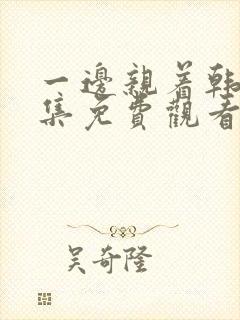 一邊親着韩
集免費觀看
吴奇隆